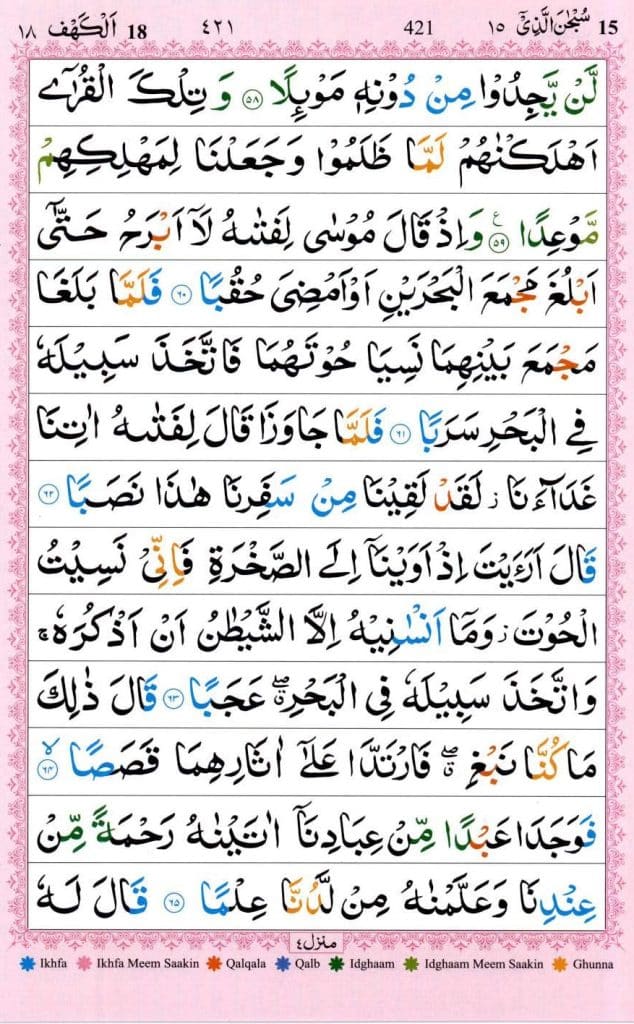 15 سُبْحٰنَ الَّذِیْۤ ١٥ 421 ٤٢١ 18 اَلْكَهْف ١٨
لَّنْ یَّجِدُوْا مِنْ دُوْنِهٖ مَوْىِٕلًا ﴿٥٨﴾ وَ تِلْكَ الْقُرٰۤى
اَهْلَكْنٰهُمْ لَمَّا ظَلَمُوْا وَ جَعَلْنَا لِمَهْلِكِهِمْ
مَّوْعِدًا ﴿٥٩﴾ ع وَ اِذْ قَالَ مُوْسٰى لِفَتٰىهُ لَاۤ اَبْرَحُ حَتّٰۤى
اَبْلُغَ مَجْمَعَ الْبَحْرَیْنِ اَوْ اَمْضِیَ حُقُبًا ﴿٦٠﴾ فَلَمَّا بَلَغَا
مَجْمَعَ بَیْنِهِمَا نَسِیَا حُوْتَهُمَا فَاتَّخَذَ سَبِیْلَهٗ
فِی الْبَحْرِ سَرَبًا ﴿٦١﴾ فَلَمَّا جَاوَزَا قَالَ لِفَتٰىهُ اٰتِنَا
غَدَآءَنَا ؗ لَقَدْ لَقِیْنَا مِنْ سَفَرِنَا هٰذَا نَصَبًا ﴿٦٢﴾
قَالَ اَرَءَیْتَ اِذْ اَوَیْنَاۤ اِلَى الصَّخْرَةِ فَاِنِّیْ نَسِیْتُ
الْحُوْتَ ؗ وَ مَاۤ اَنْسٰىنِیْهُ اِلَّا الشَّیْطٰنُ اَنْ اَذْكُرَهٗ ۚ
وَ اتَّخَذَ سَبِیْلَهٗ فِی الْبَحْرِ ۖۗ عَجَبًا ﴿٦٣﴾ قَالَ ذٰلِكَ
مَا كُنَّا نَبْغِ ۖۗ فَارْتَدَّا عَلٰۤى اٰثَارِهِمَا قَصَصًا ۙ﴿٦٤﴾
فَوَجَدَا عَبْدًا مِّنْ عِبَادِنَاۤ اٰتَیْنٰهُ رَحْمَةً مِّنْ
عِنْدِنَا وَ عَلَّمْنٰهُ مِنْ لَّدُنَّا عِلْمًا ﴿٦٥﴾ قَالَ لَهٗ
منزل ٤
Ikhfa Ikhfa Meem Saakin Qalqala Qalb Idghaam Idghaam Meem Saakin Ghunna